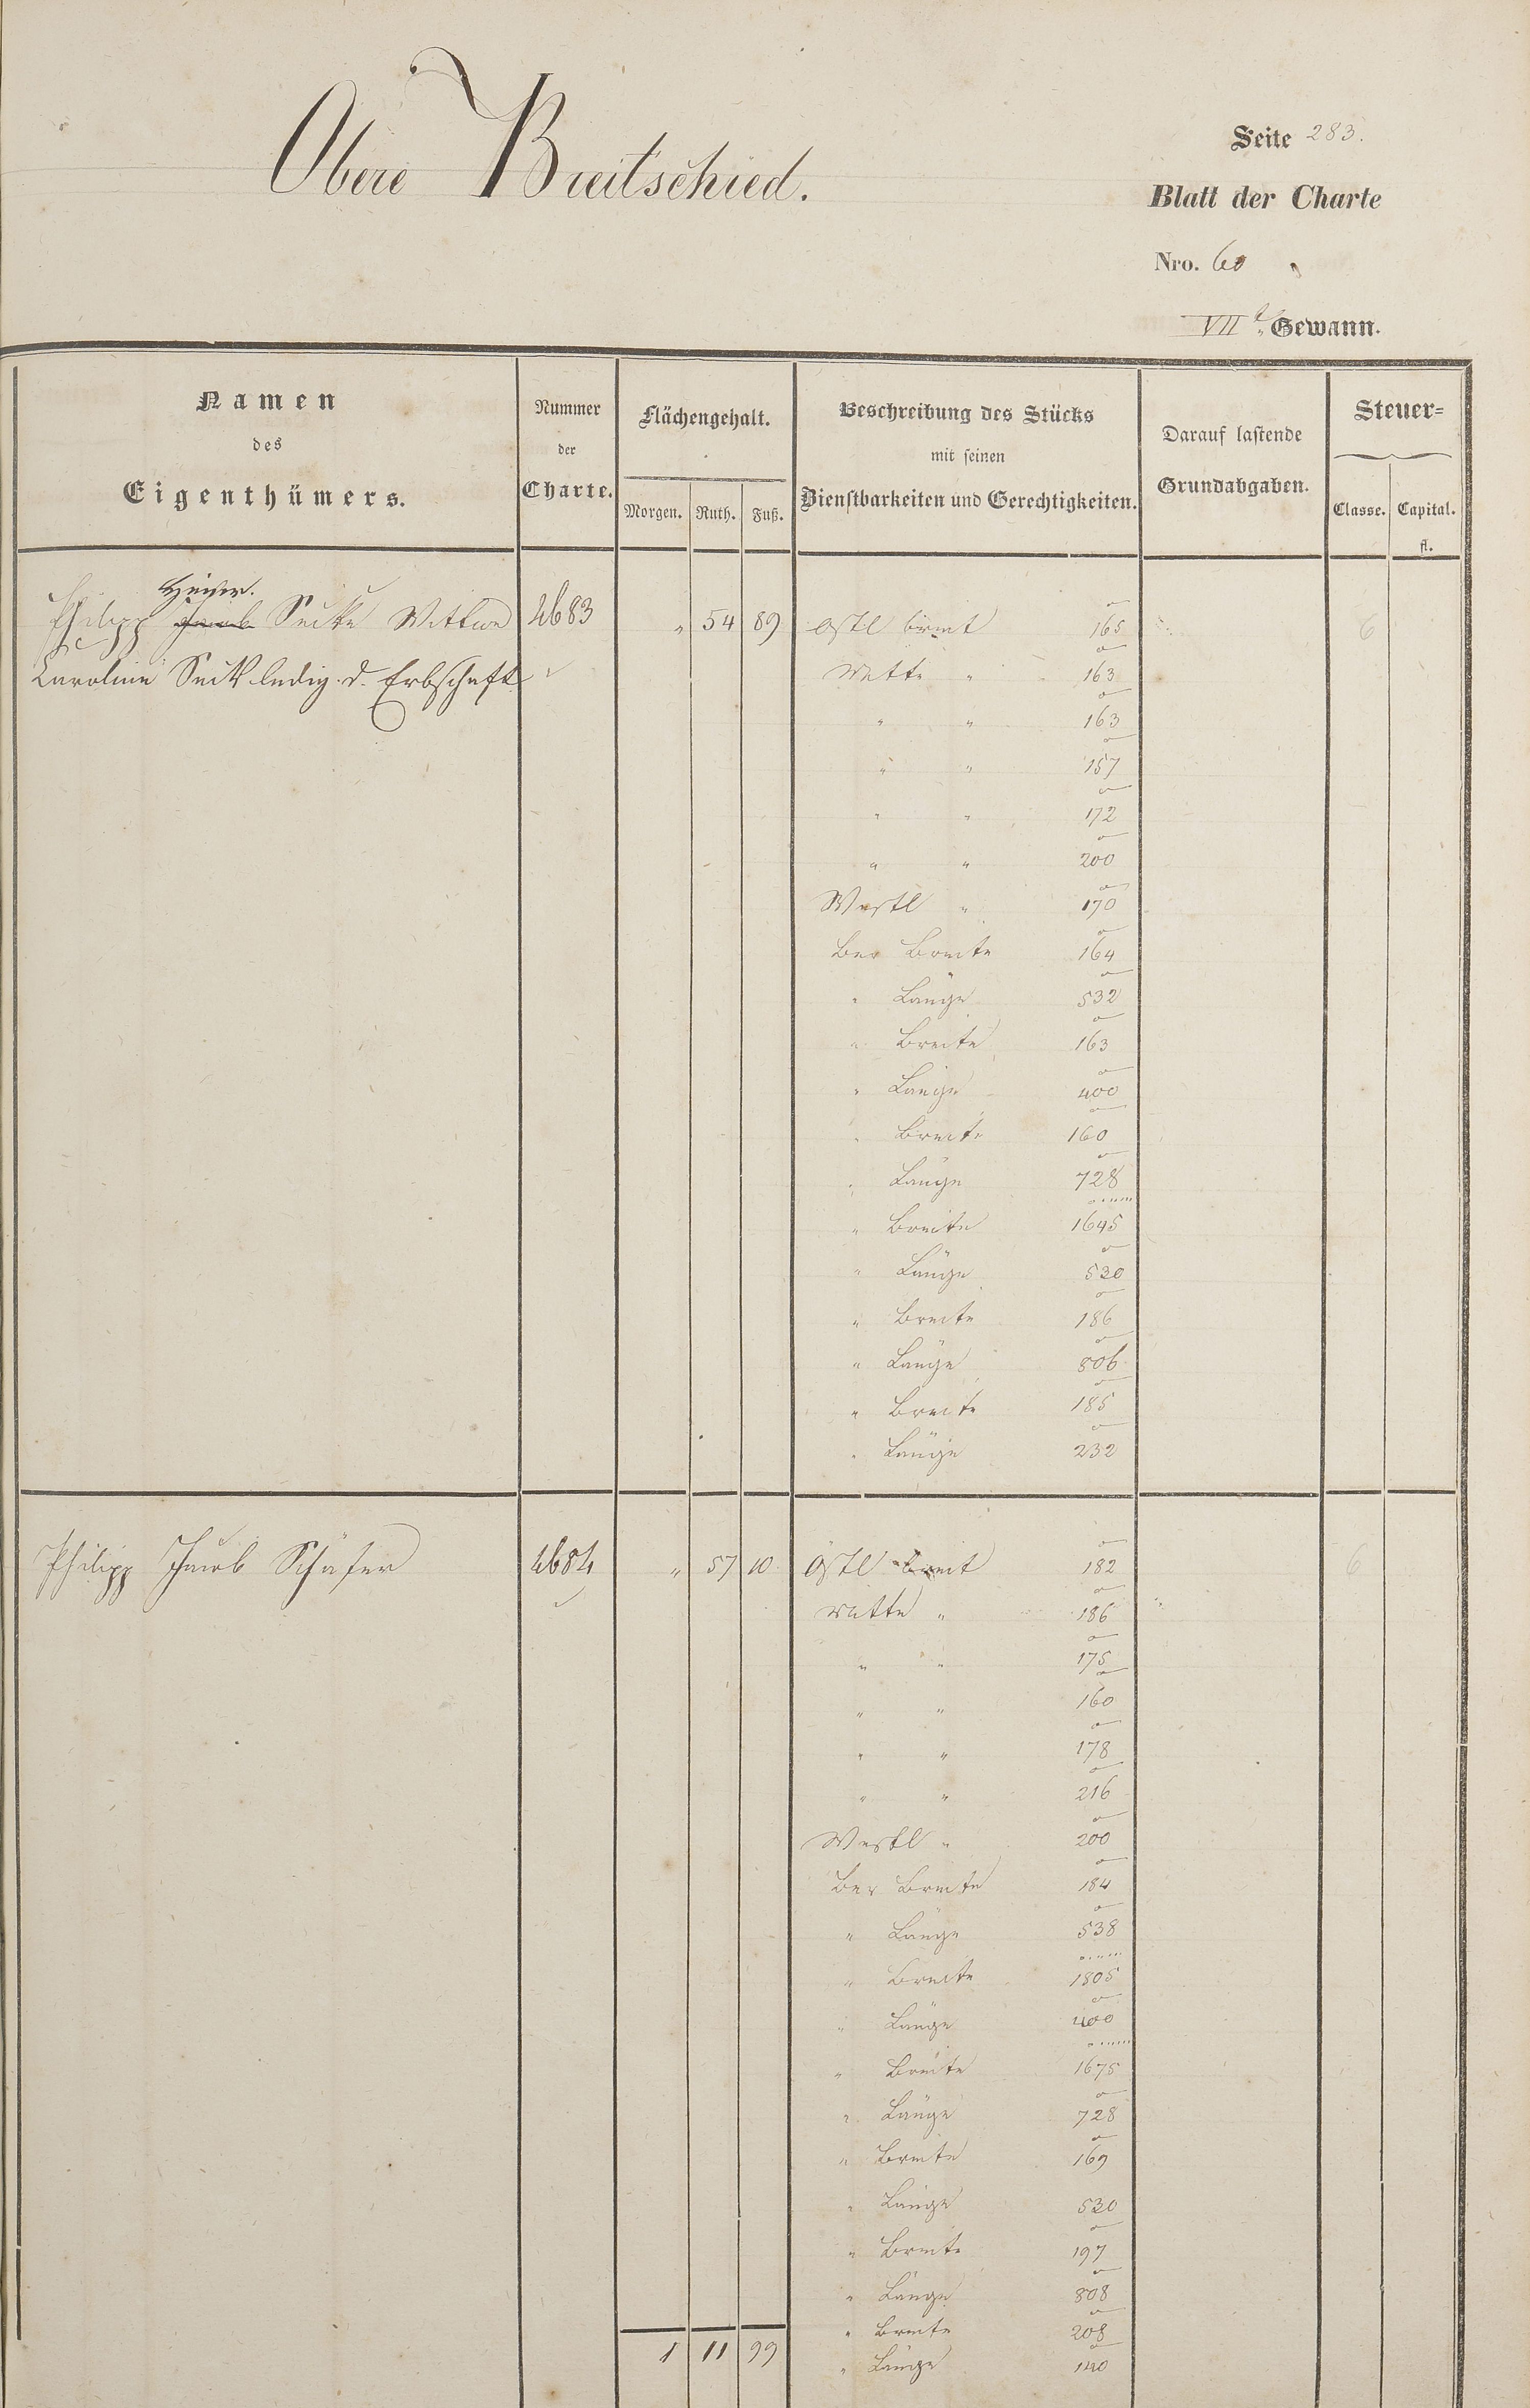 Obere Breitschied.
Seite 283.
Blatt der Charte
Nro. 60
VII t. Gewann.
Namen
des
Eigenthümers.
Nummer
der
Charte.
Flächengehalt.
Morgen. Ruth. Fuß.
Beschreibung des Stücks
mit seinen
Dienstbarkeiten und Gerechtigkeiten.
Darauf lastende
Grundabgaben.
Steuer=
Classe. Capital.
fl.
Philipp Jacob Wittwe 4683 " 54 89 Östl breit 165 6
Caroline ledig d. Erbschaft Mitte " 163
" " 163
" " 157
" " 172
" " 200
Westl " 170
Ber Breite 164
" Länge 532
" Breite 163
" Länge 400
" Breite 160
" Länge 728
" Breite 1645
" Länge 520
" Breite 186
" Länge 806
" Breite 185
" Länge 232
Philipp Jacob Schäfer 4684 " 57 10 Östl breit 182 6
Mitte " 186
" " 175
" " 160
" " 178
" " 216
Westl " 200
Ber Breite 184
" Länge 538
" Breite 1805
" Länge 400
" Breite 1675
" Länge 728
" Breite 169
" Länge 520
" Breite 197
" Länge 808
" Breite 208
1 11 99 " Länge 140